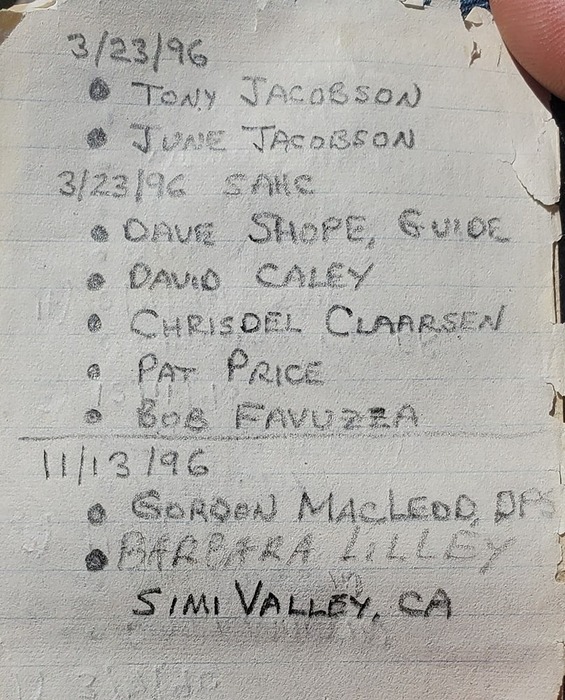 3/23/96
• TONY JACOBSON
• JUNE JACOBSON
3/23/96 SAHC
• DAVE SHOPE, GUIDE
• DAVID CALEY
• CHRISDEL CLAARSEN
• PAT PRICE
• BOB FAVUZZA
11/13/96
• GORDON MACLEOD, DPS
• BARBARA LILLEY
SIMI VALLEY, CA